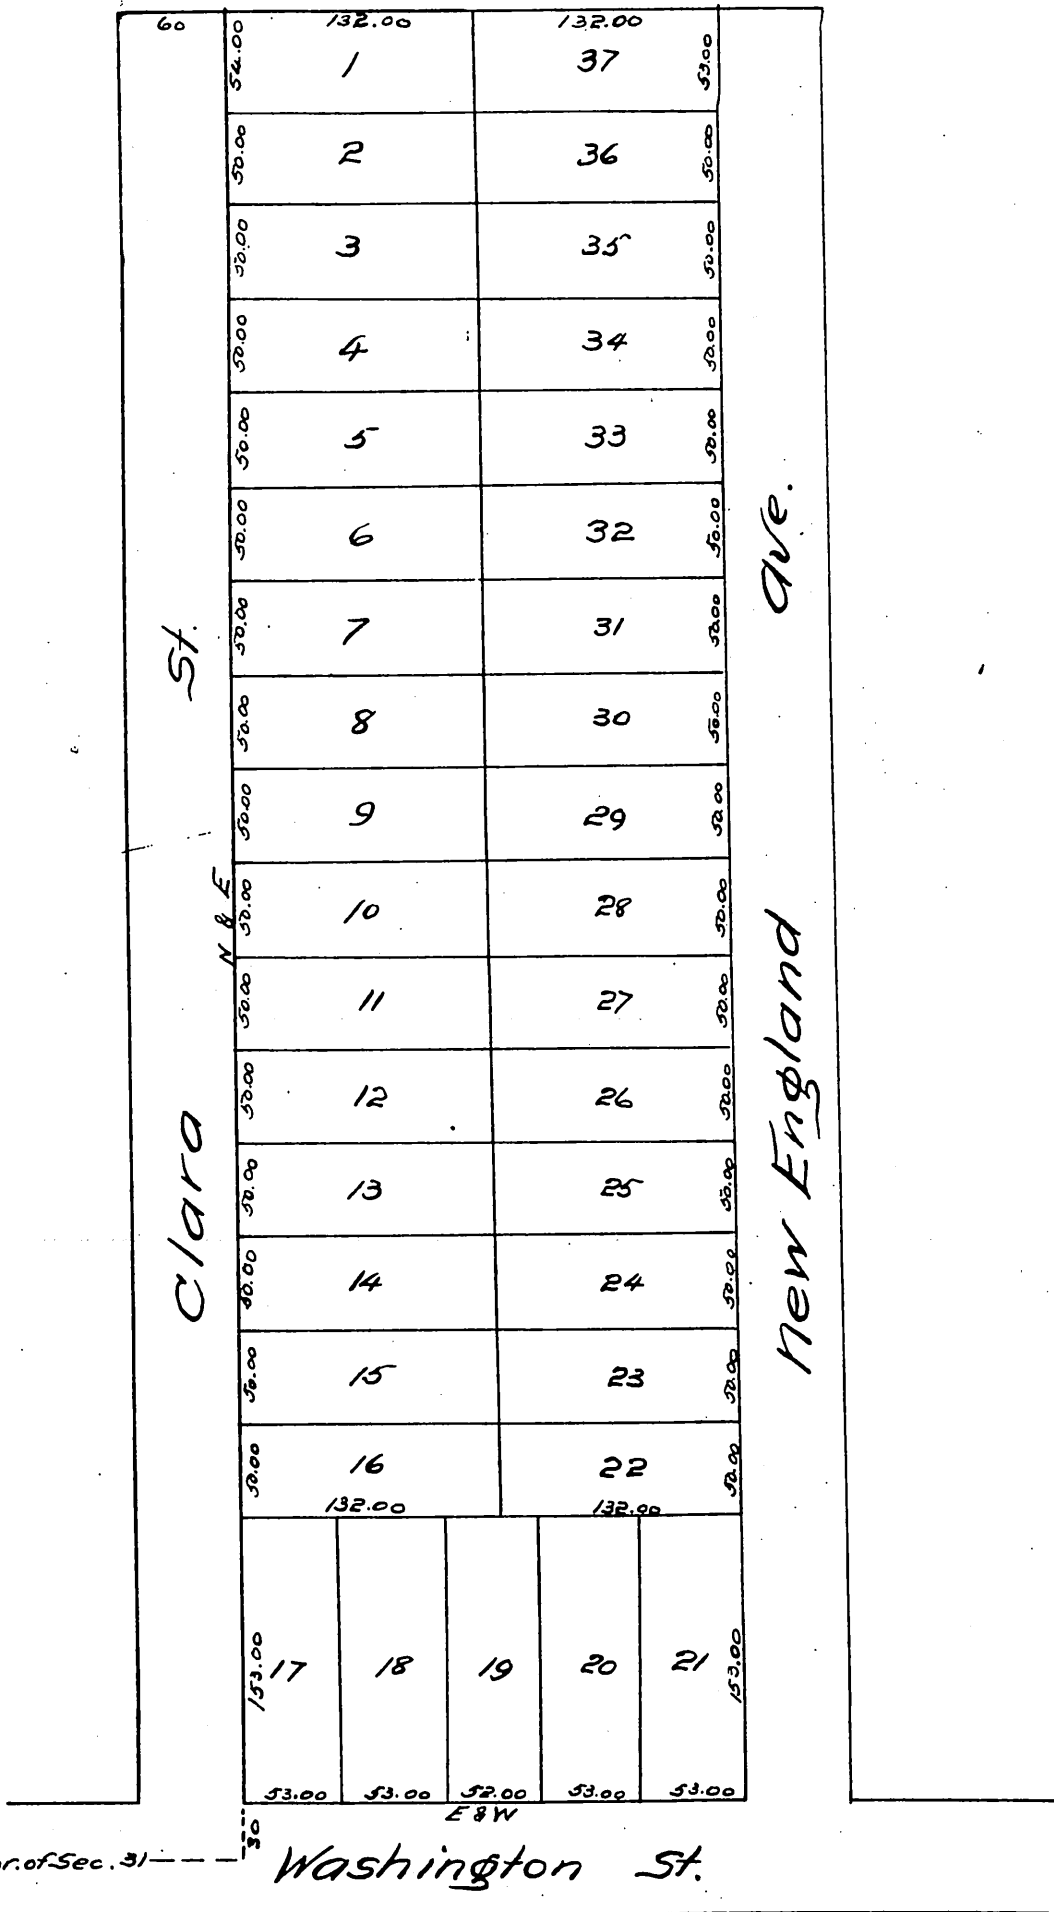 60 132.00 132.00
54.00 1 37 53.00
50.00 2 36 50.00
50.00 3 35 50.00
50.00 4 34 50.00
50.00 5 33 50.00
50.00 6 32 50.00
50.00 7 31 50.00
50.00 8 30 50.00
50.00 9 29 50.00
50.00 10 28 50.00
50.00 11 27 50.00
50.00 12 26 50.00
50.00 13 25 50.00
50.00 14 24 50.00
50.00 15 23 50.00
50.00 16 22 50.00
132.00 132.00
153.00 17 18 19 20 21 153.00
53.00 53.00 52.00 53.00 53.00
Clara St.
N & E
New England Ave.
E & W
30
r. of Sec. 31
Washington St.